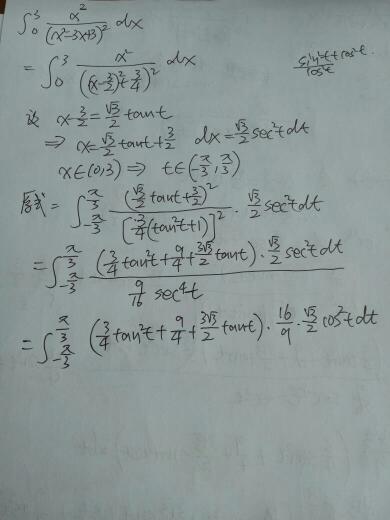 ∫₀³ x²/(x²-3x+3)² dx
= ∫₀³ x²/((x-3/2)²+3/4)² dx
(sin²t+cos²t)/cos²t
设 x-3/2=√3/2 tant
⇒ x=√3/2 tant+3/2 dx=√3/2 sec²t dt
x∈(0,3) ⇒ t∈(-π/3, π/3)
原式= ∫_{-π/3}^{π/3} (√3/2 tant+3/2)²/[3/4(tan²t+1)]² · √3/2 sec²t dt
= ∫_{-π/3}^{π/3} (3/4 tan²t+9/4+3√3/2 tant)·√3/2 sec²t dt / (9/16 sec⁴t)
= ∫_{-π/3}^{π/3} (3/4 tan²t+9/4+3√3/2 tant)·16/9·√3/2 cos²t dt